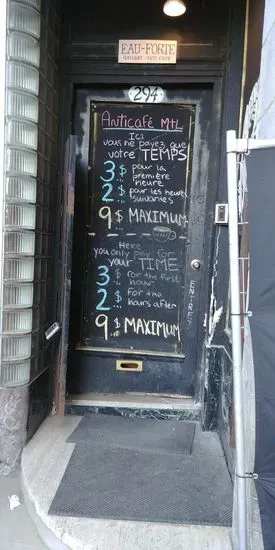 EAU-FORTE
GALLERY AND CAFE
294
Anticafé Mtl
Ici
vous ne payez que
votre TEMPS
3$ pour la
première
heure
2$ pour les heures
suivantes
9$ MAXIMUM
Here
you only pay for
your TIME
3$ for the first
hour
2$ for the
hours after
9$ MAXIMUM
ENTREZ